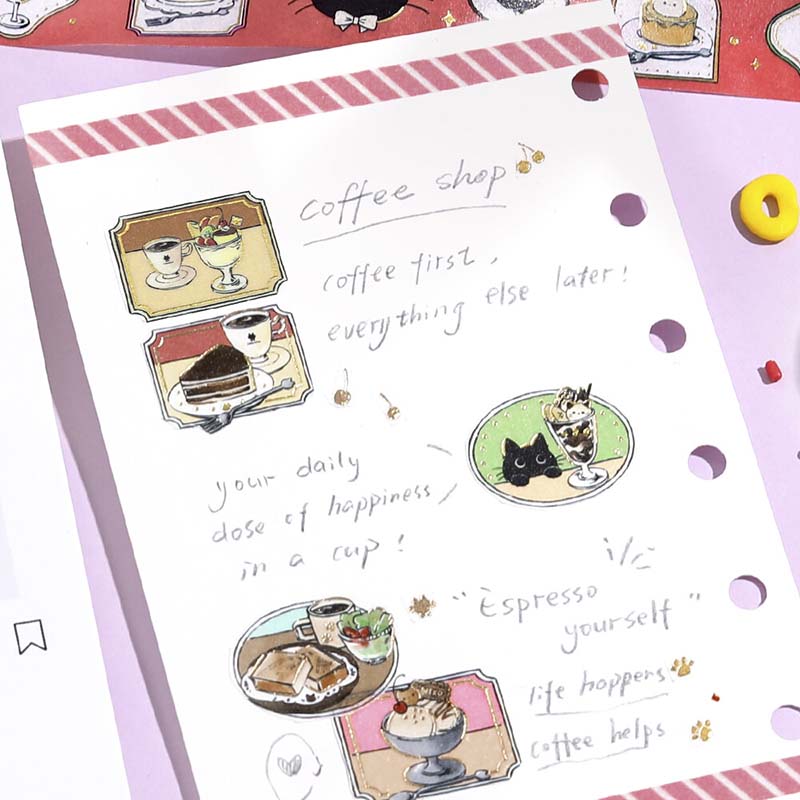 coffee shop
coffee first,
everything else later!
your daily
dose of happiness
in a cup!
"Espresso
yourself"
life happens
coffee helps